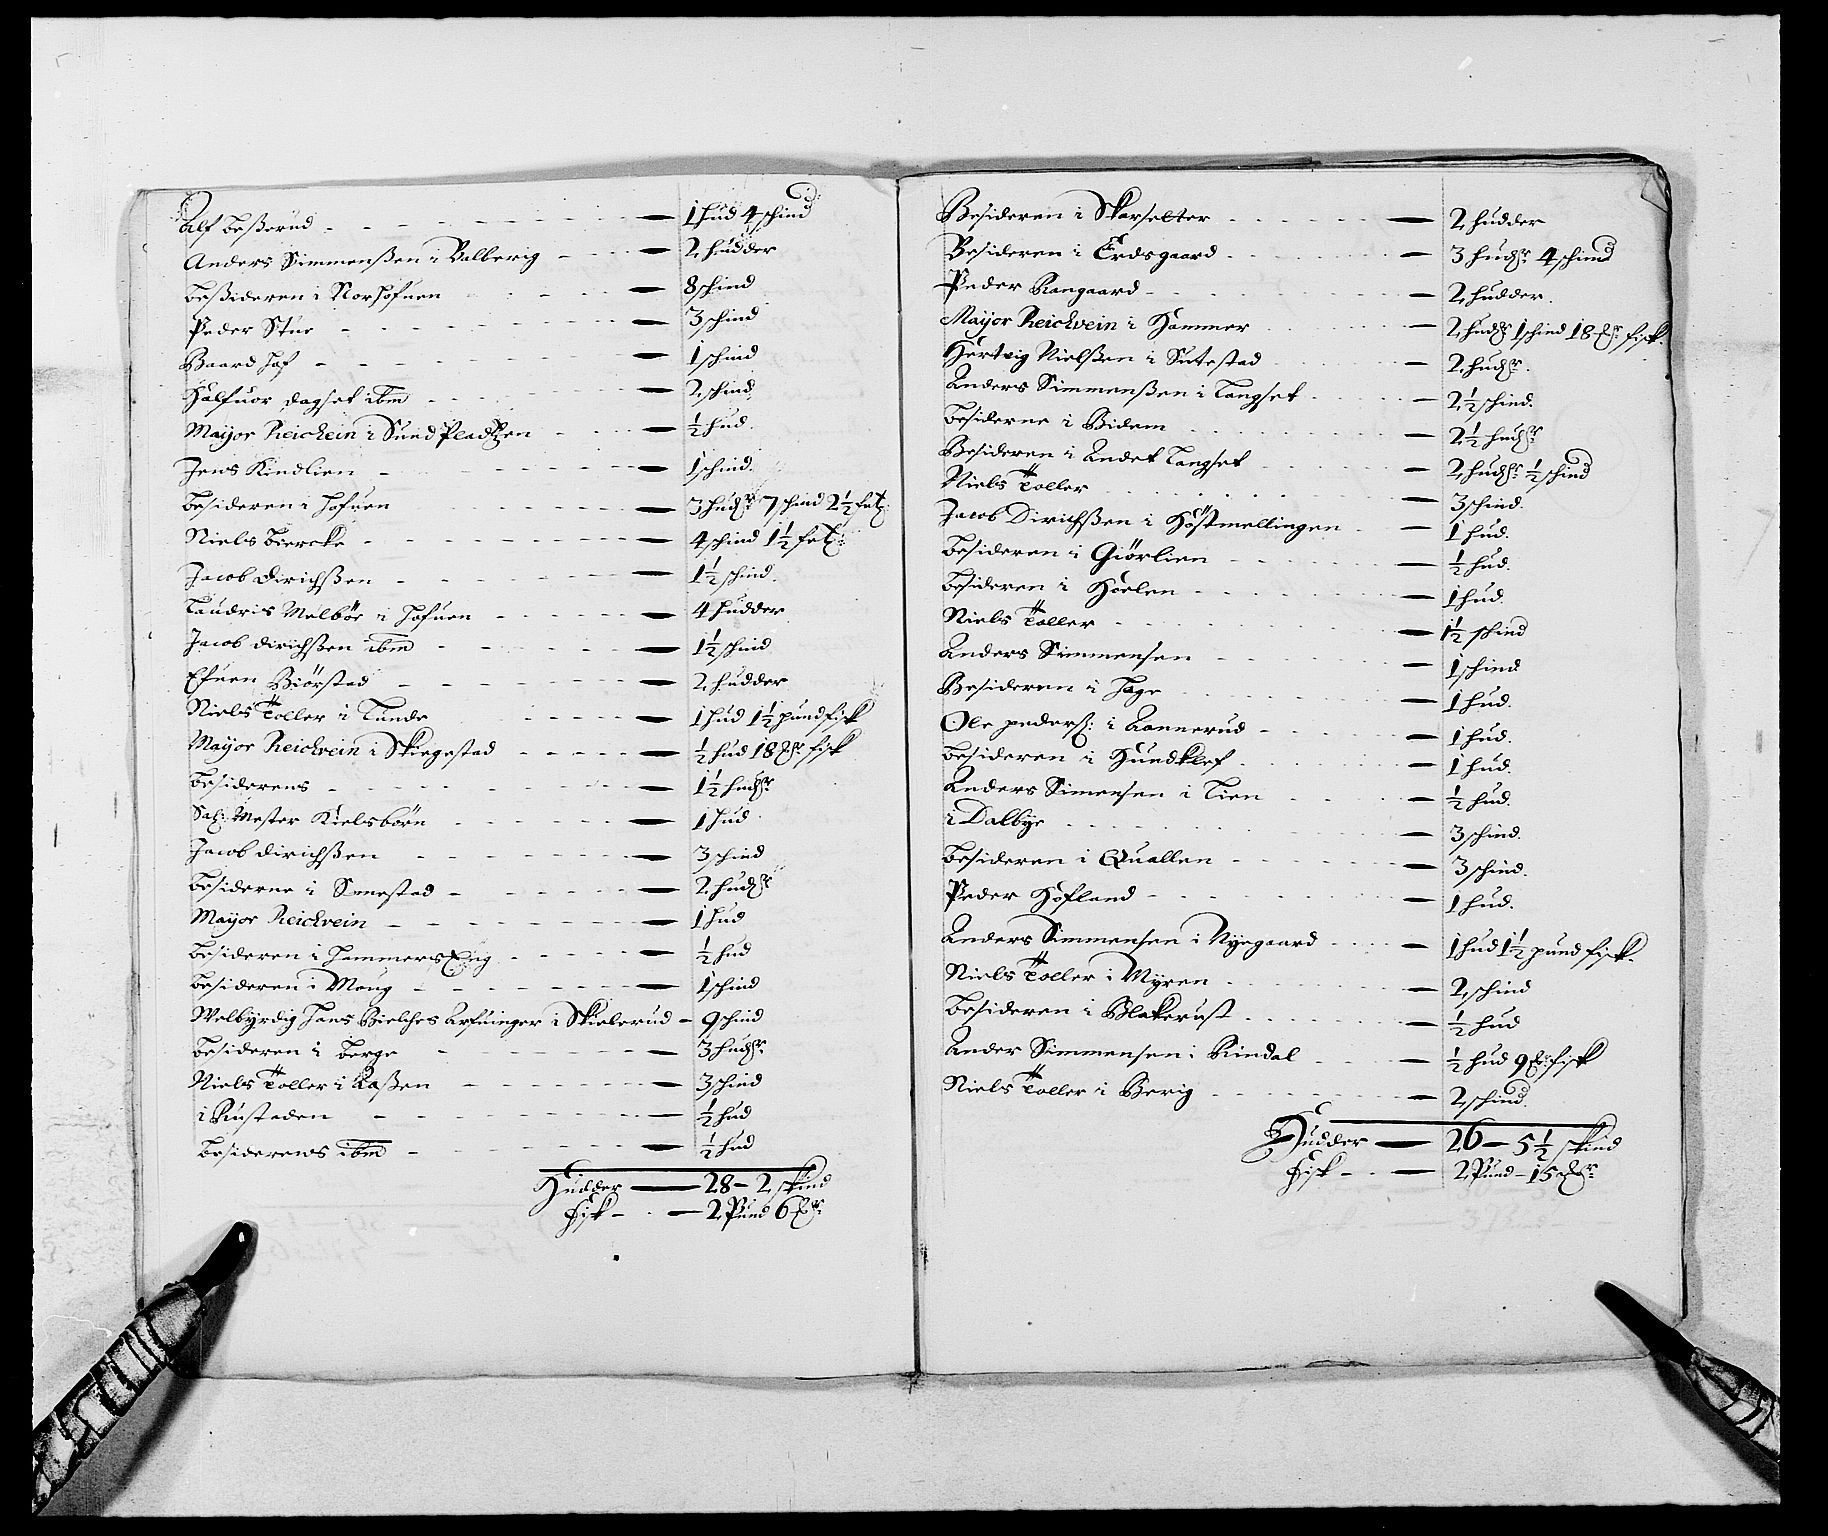 Alf Beßerud - - - - - - - 1 hud 4 schind
Anders Simmenßen i Balberig - - - 2 hudder
Beßideren i Norhofuen - - - - 8 schind
Peder Stue - - - - - - - 3 schind
Baard Hof - - - - - - - 1 schind
Halfuor dagset ibm - - - - - 2 schind
Mayor Reichein i Sund Pladtzen - - - ½ hud
Jens Kindlien - - - - - - 1 schind.
Besideren i Hofuen - - - - - 3 hudr 7 schind 2½
Niels Biercke - - - - - - - 4 schind 1½
Jacob Dirichßen - - - - - - 1½ schind.
Laudris Melbör i Hofuen - - - - 4 hudder
Jacob dirichßen ibm - - - - - 1½ schind
Efuen Biörstad - - - - - - 2 hudder
Niels Toller i Lunde - - - - 1 hud 1½ pund fisk
Mayor Reichvein i Skiegestad - - - - ½ hud 18 fisk
Besiderens - - - - - - - 1½ hudr
Sal: Mester Kielsbörn - - - - - 1 hud
Jacob dirichßen - - - - - - 3 schind
Besiderne i Smestad - - - - - 2 hudr
Mayor Reichvein - - - - - - 1 hud
Besideren i Hammers Eng - - - - ½ hud
Besideren i Moug - - - - - - 1 schind
Welbyrdig Hans Bielches Arfuinger i Skielerud - 9 schind
Besideren i Berge - - - - - 3 hudr
Niels Toller i Aaßen - - - - - 3 schind
i Rustaden - - - - - - ½ hud
Besiderens ibm - - - - - ½ hud
Hudder — 28 - 2 skind
Fisk - - — 2 Pund 6
Besideren i Skarsetter - - - - 2 hudder
Besideren i Erdsgaard - - - - 3 hudr 4 schind
Peder Aangaard - - - - - - 2 hudder.
Mayor Reichvein i Hammer - - - 2 hudr 1 schind 18 fisk.
Hertvig Nielßen i Sutestad - - - 2 hudr.
Anders Simmenßen i Langset - - - 2½ schind.
Besiderne i Bidem - - - - - 2½ hudr
Besideren i Andet Langset - - - 2 hudr ½ schind
Niels Toller - - - - - - 3 schind.
Jacob Dirichßen i Höstmellingen - - 1 hud.
Besideren i Giörlien - - - - - ½ hud.
Besideren i Hoelen - - - - - 1 hud.
Niels Toller - - - - - - 1½ schind
Anders Simmensen - - - - - 1 schind
Besideren i Hage - - - - - 1 hud.
Ole peders: i Aannerud - - - - 1 hud.
Besideren i Hundklef - - - - 1 hud.
Anders Simensen i Lien - - - - ½ hud.
i Dalbye - - - - - - - 3 schind.
Besideren i Quallen - - - - - 3 schind.
Peder Hofland - - - - - - 1 hud.
Anders Simmensen i Nyegaard - - - 1 hud 1½ pund fisk.
Niels Toller i Myren - - - - - 2 schind
Besideren i Blakerust - - - - ½ hud
Ander Simmensen i Rindal - - - ½ hud 9 fisk
Niels Toller i Berig - - - - - 2 schind.
Hudder — 26 - 5½ skind
Fisk - - — 2 Pund - 15